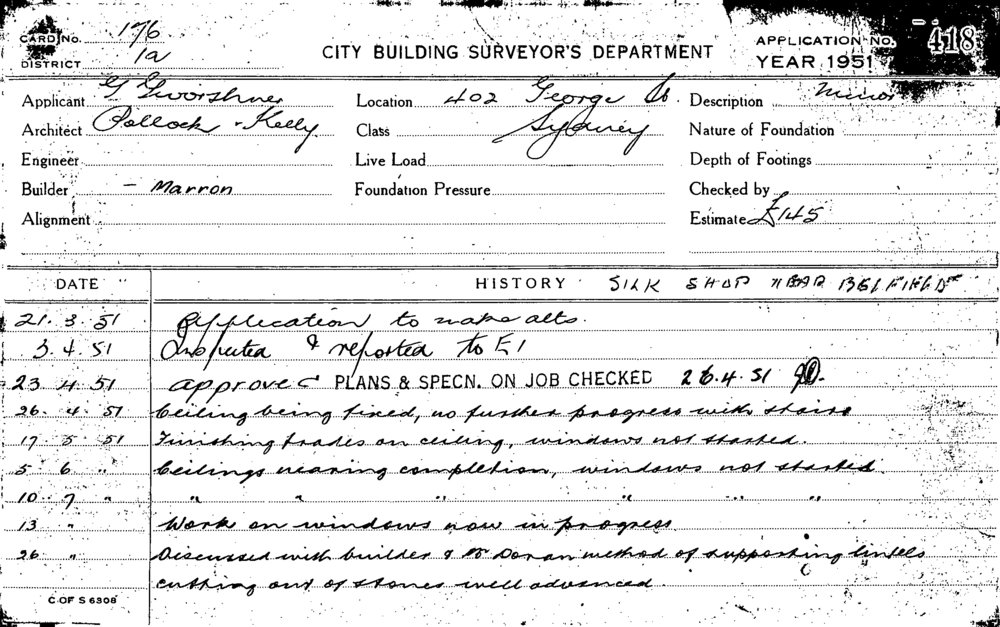 CARD No. 176
DISTRICT 1a
CITY BUILDING SURVEYOR'S DEPARTMENT
APPLICATION No. 418
YEAR 1951
Applicant G
Location 402 George St.
Description Minor
Architect Pollock & Kelly
Class Sydney
Nature of Foundation
Engineer
Live Load
Depth of Footings
Builder - Marron
Foundation Pressure
Checked by
Alignment
Estimate £145
DATE HISTORY SILK SHOP NEAR
21. 3. 51 Application to make alts.
3. 4. 51 Inspected & reported to E1
23 4. 51 approved PLANS & SPECN. ON JOB CHECKED 26.4.51
26. 4. 51 Ceiling being fixed, no further progress with stairs
17 5 51 Finishing trades on ceiling, windows not started.
5 6 " Ceilings nearing completion, windows not started.
10 7 " " " " " " "
13 " Work on windows now in progress.
26 " Discussed with builder & Mr Doran method of supporting lintels
cutting out of stones well advanced.
C OF S 6308